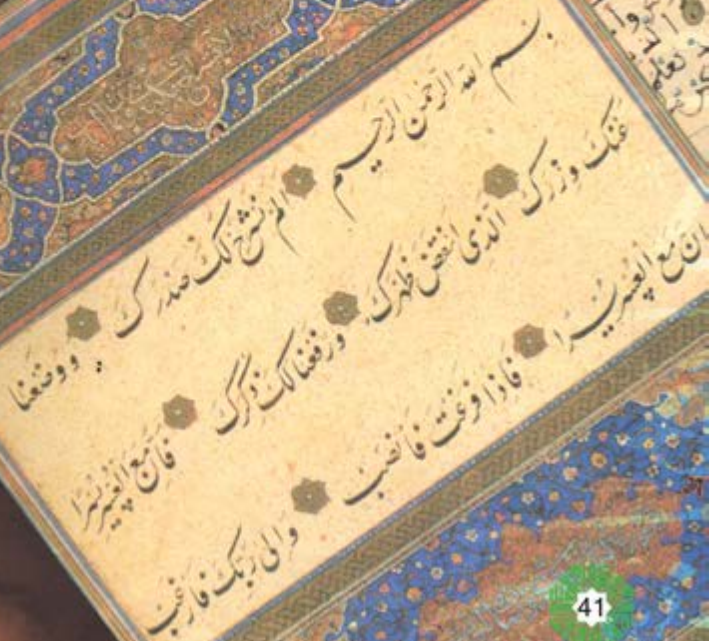 بسم الله الرحمن الرحيم الم نشرح لك صدرك ووضعنا
عنك وزرك الذی انقض ظهرك ورفعنا لك ذكرك فان مع العسر يسرا
ان مع العسر يسرا فاذا فرغت فانصب والی ربك فارغب
41